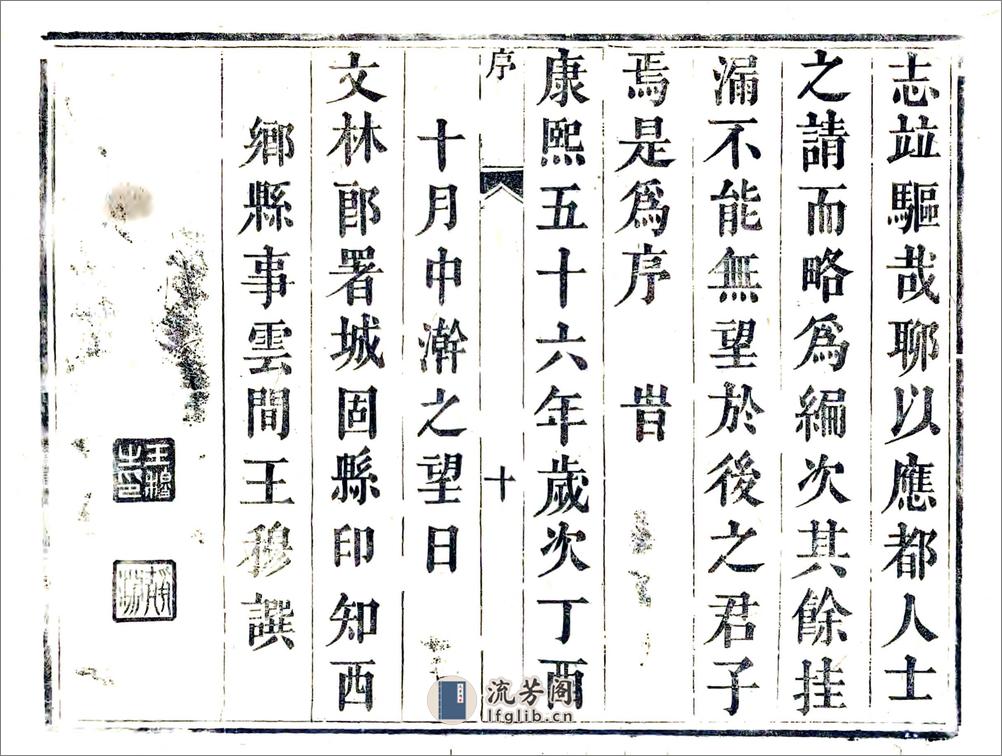 志竝驅哉聊以應都人士
之請而略爲編次其餘挂
漏不能無望於後之君子
焉是爲序　旹
康熙五十六年歲次丁酉
序
十
十月中澣之望日
文林郎署城固縣印知西
鄉縣事雲間王穆撰
流芳阁
lfglib.cn